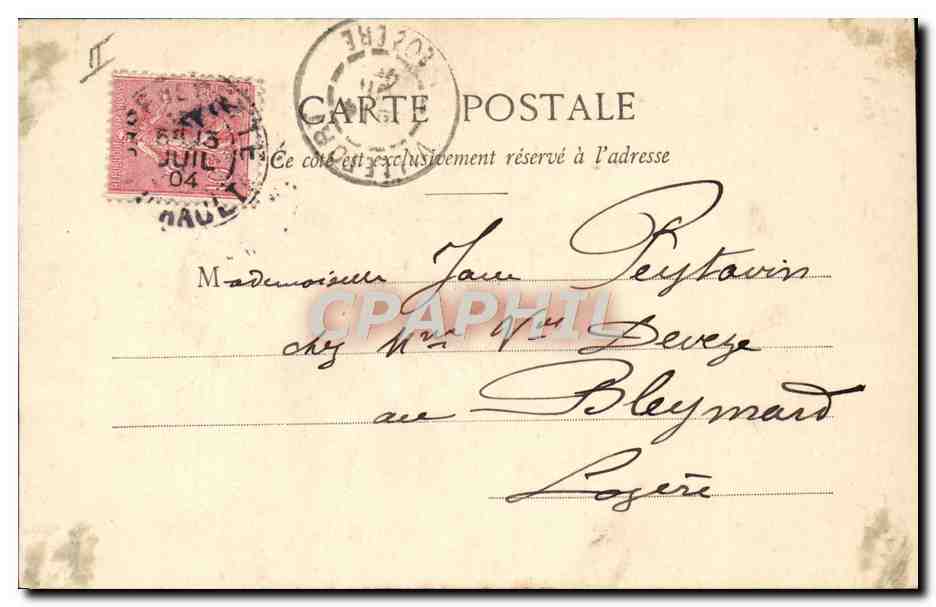 II
CARTE POSTALE
Ce coté est exclusivement réservé à l'adresse
LOZERE
VILLEFORT
13
JUIL
04
Mademoiselle Jane Peytavin
chez Mme Vve Deveze
au Bleymard
Lozère
CPAPHIL